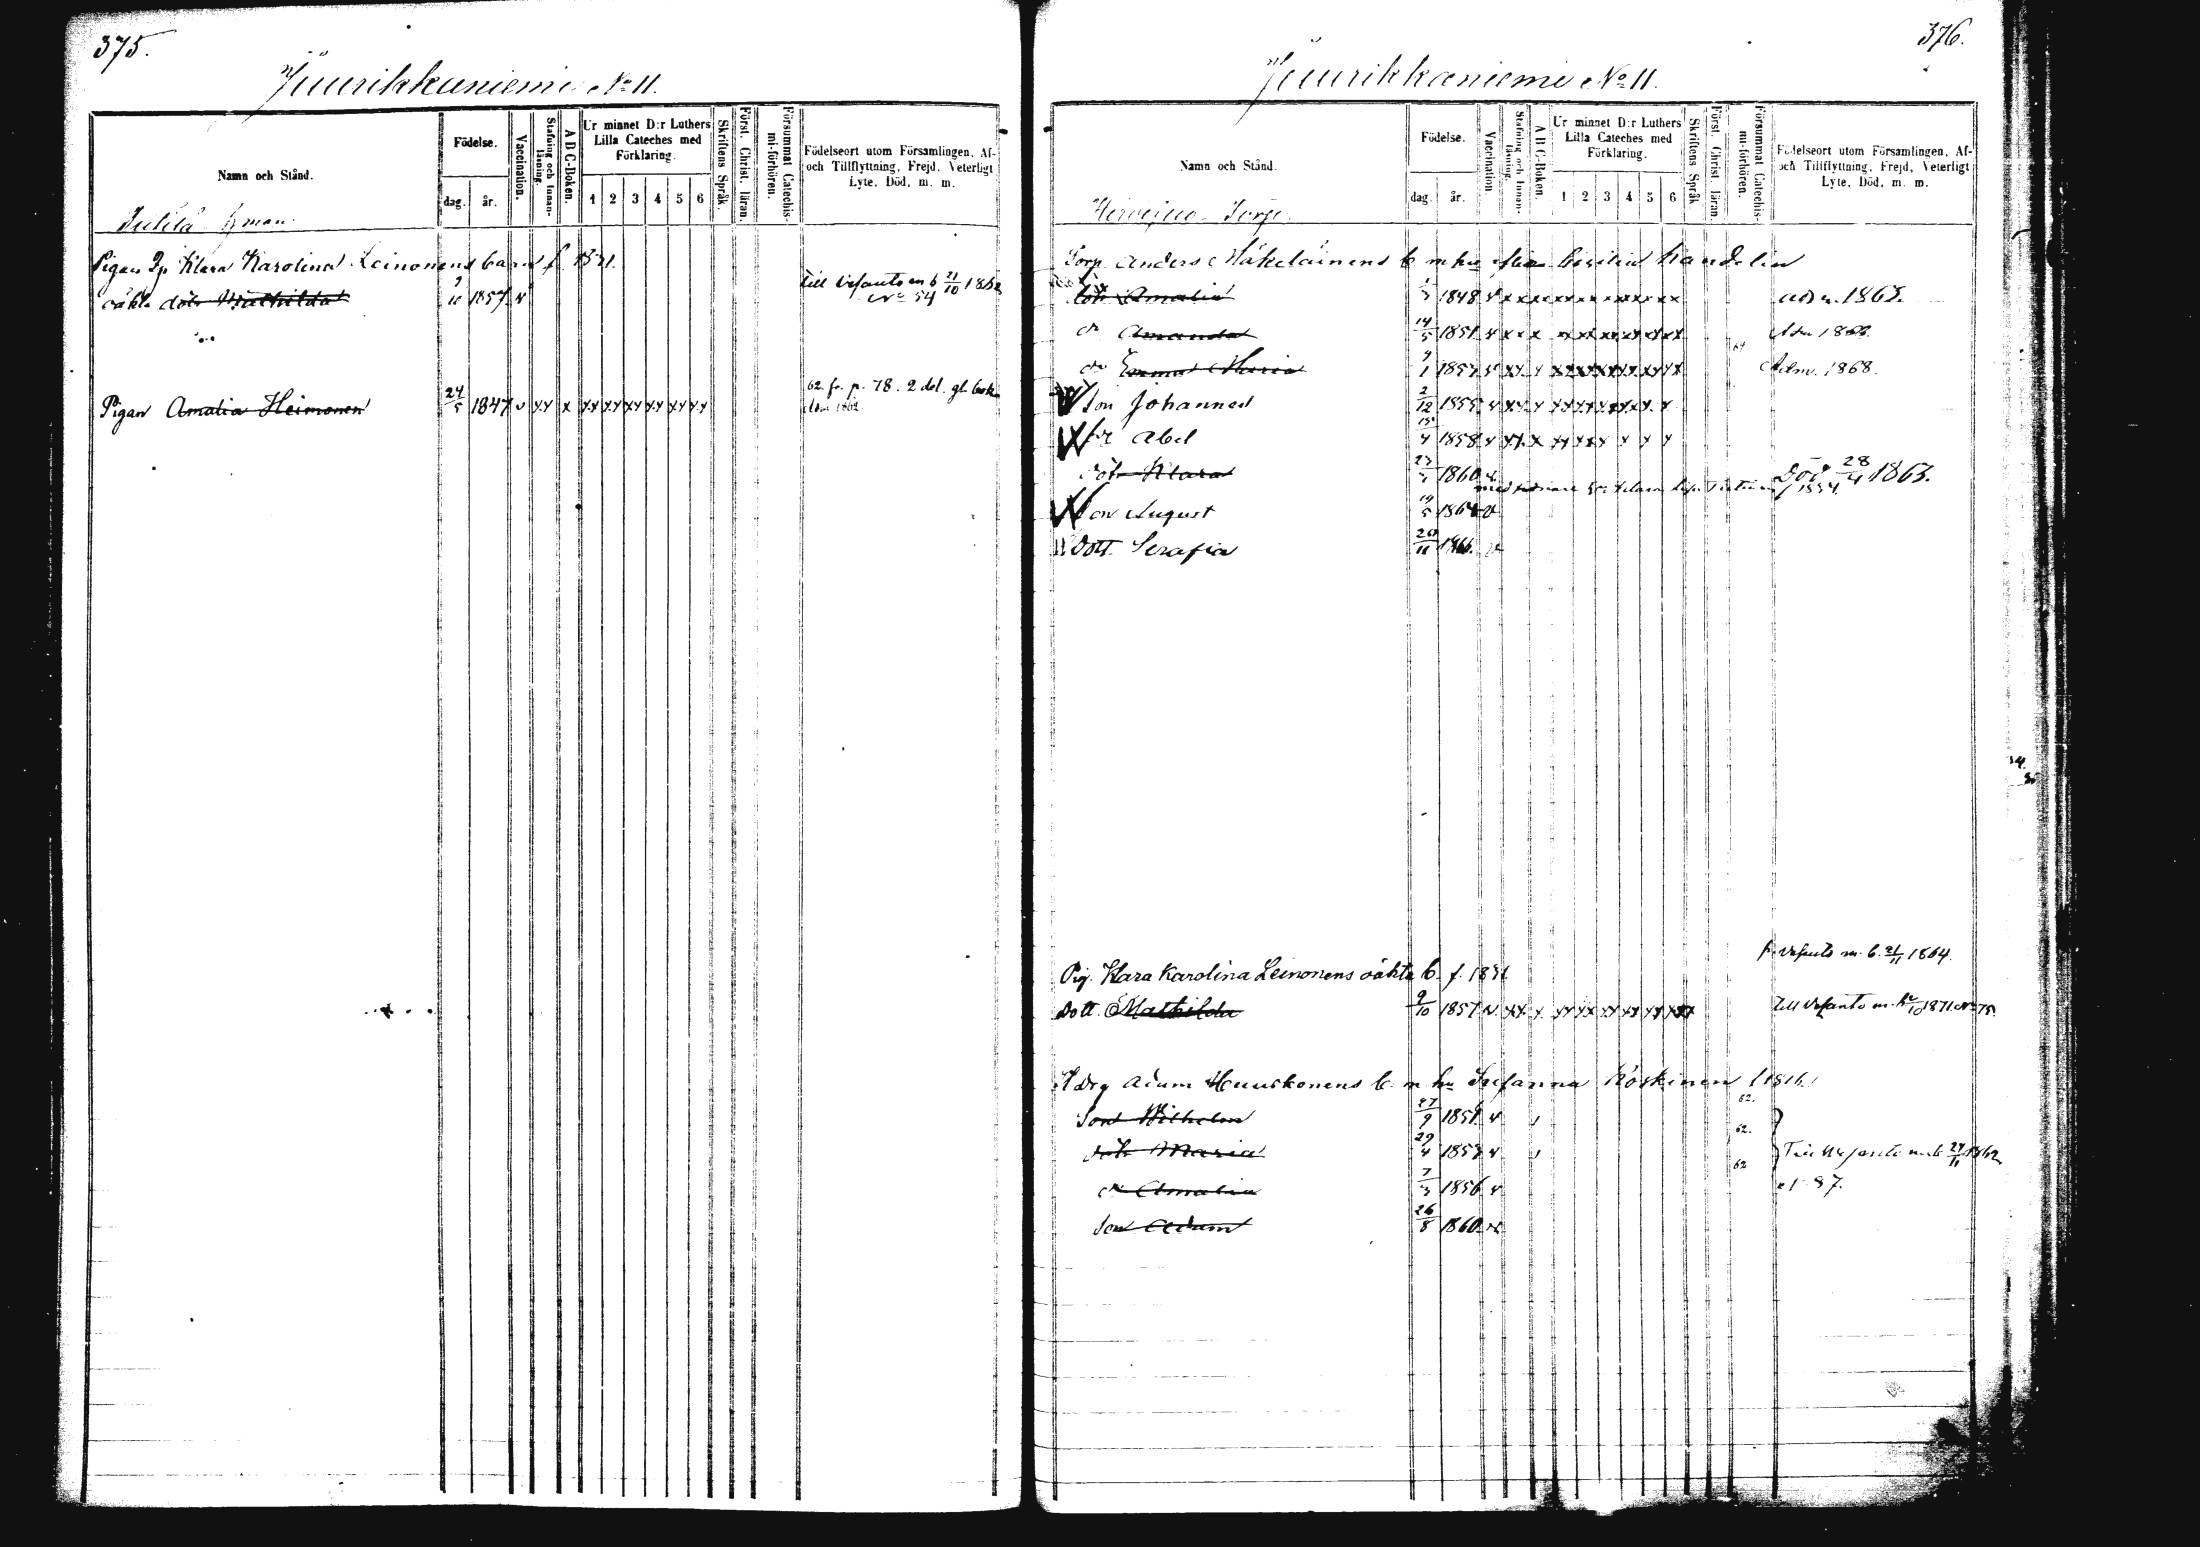 375.
Juurikkaniemi No 11.
Namn och Stånd.
Födelse.
dag.
år.
Vaccination.
Stafning och Innanläsning.
A B C-Boken.
Ur minnet D:r Luthers Lilla Cateches med Förklaring.
1 2 3 4 5 6
Skriftens Språk.
Först. Christ. läran.
Försummat Catechismi-förhören.
Födelseort utom Församlingen, Af- och Tillflyttning, Frejd, Veterligt Lyte, Död, m. m.
Pigan Klara Karolina Leinonens barn f. 1831.
oäkta dotr Mathilda 9/10 1857 v Till Vesanto m b 21/10 1862
No 54
Pigan Amalia Heimonen 24/5 1847 v xx x xx xx xx xx xx xx 62 fr. p. 78. 2 del. gl. bok
Adm 1862
376.
Juurikkaniemi No 11.
Namn och Stånd.
Födelse.
dag.
år.
Vaccination.
Stafning och Innanläsning.
A B C-Boken.
Ur minnet D:r Luthers Lilla Cateches med Förklaring.
1 2 3 4 5 6
Skriftens Språk
Först. Christ. läran.
Försummat Catechismi-förhören.
Födelseort utom Församlingen, Af- och Tillflyttning, Frejd, Veterligt Lyte, Död, m. m.
Torp
Torp. Anders Mäkeläinens b m hu
dotr Amalia 1848
dr Amanda 14/5 1851
dr Emma Maria 1853 Adm. 1868.
Son Johannes 2/12 1855
dr Abel 15/4 1858
dotr Klara 1860 Död 28/4 1863.
Son August 19/5 1864 v
Dott. Serafia 20/11 1866.
fr. Vesanto m. b. 21/11 1864.
Pig. Klara Karolina Leinonens oäkta b. f. 1831
Dott. Mathilda 9/10 1857 v xx x xx xx xx xx xx xx Till Vesanto m. 1871 No 75.
Adam Huuskonens b m hu Susanna Koskinen f 1816.
62.
Son Wilhelm 27/9 1851 v
62.
dotr Maria 29/4 1853 v Till Vesanto m b 24/11 1862
62
dr Amalia 7/3 1856 v No 87.
Son Adam 26/8 1860 v